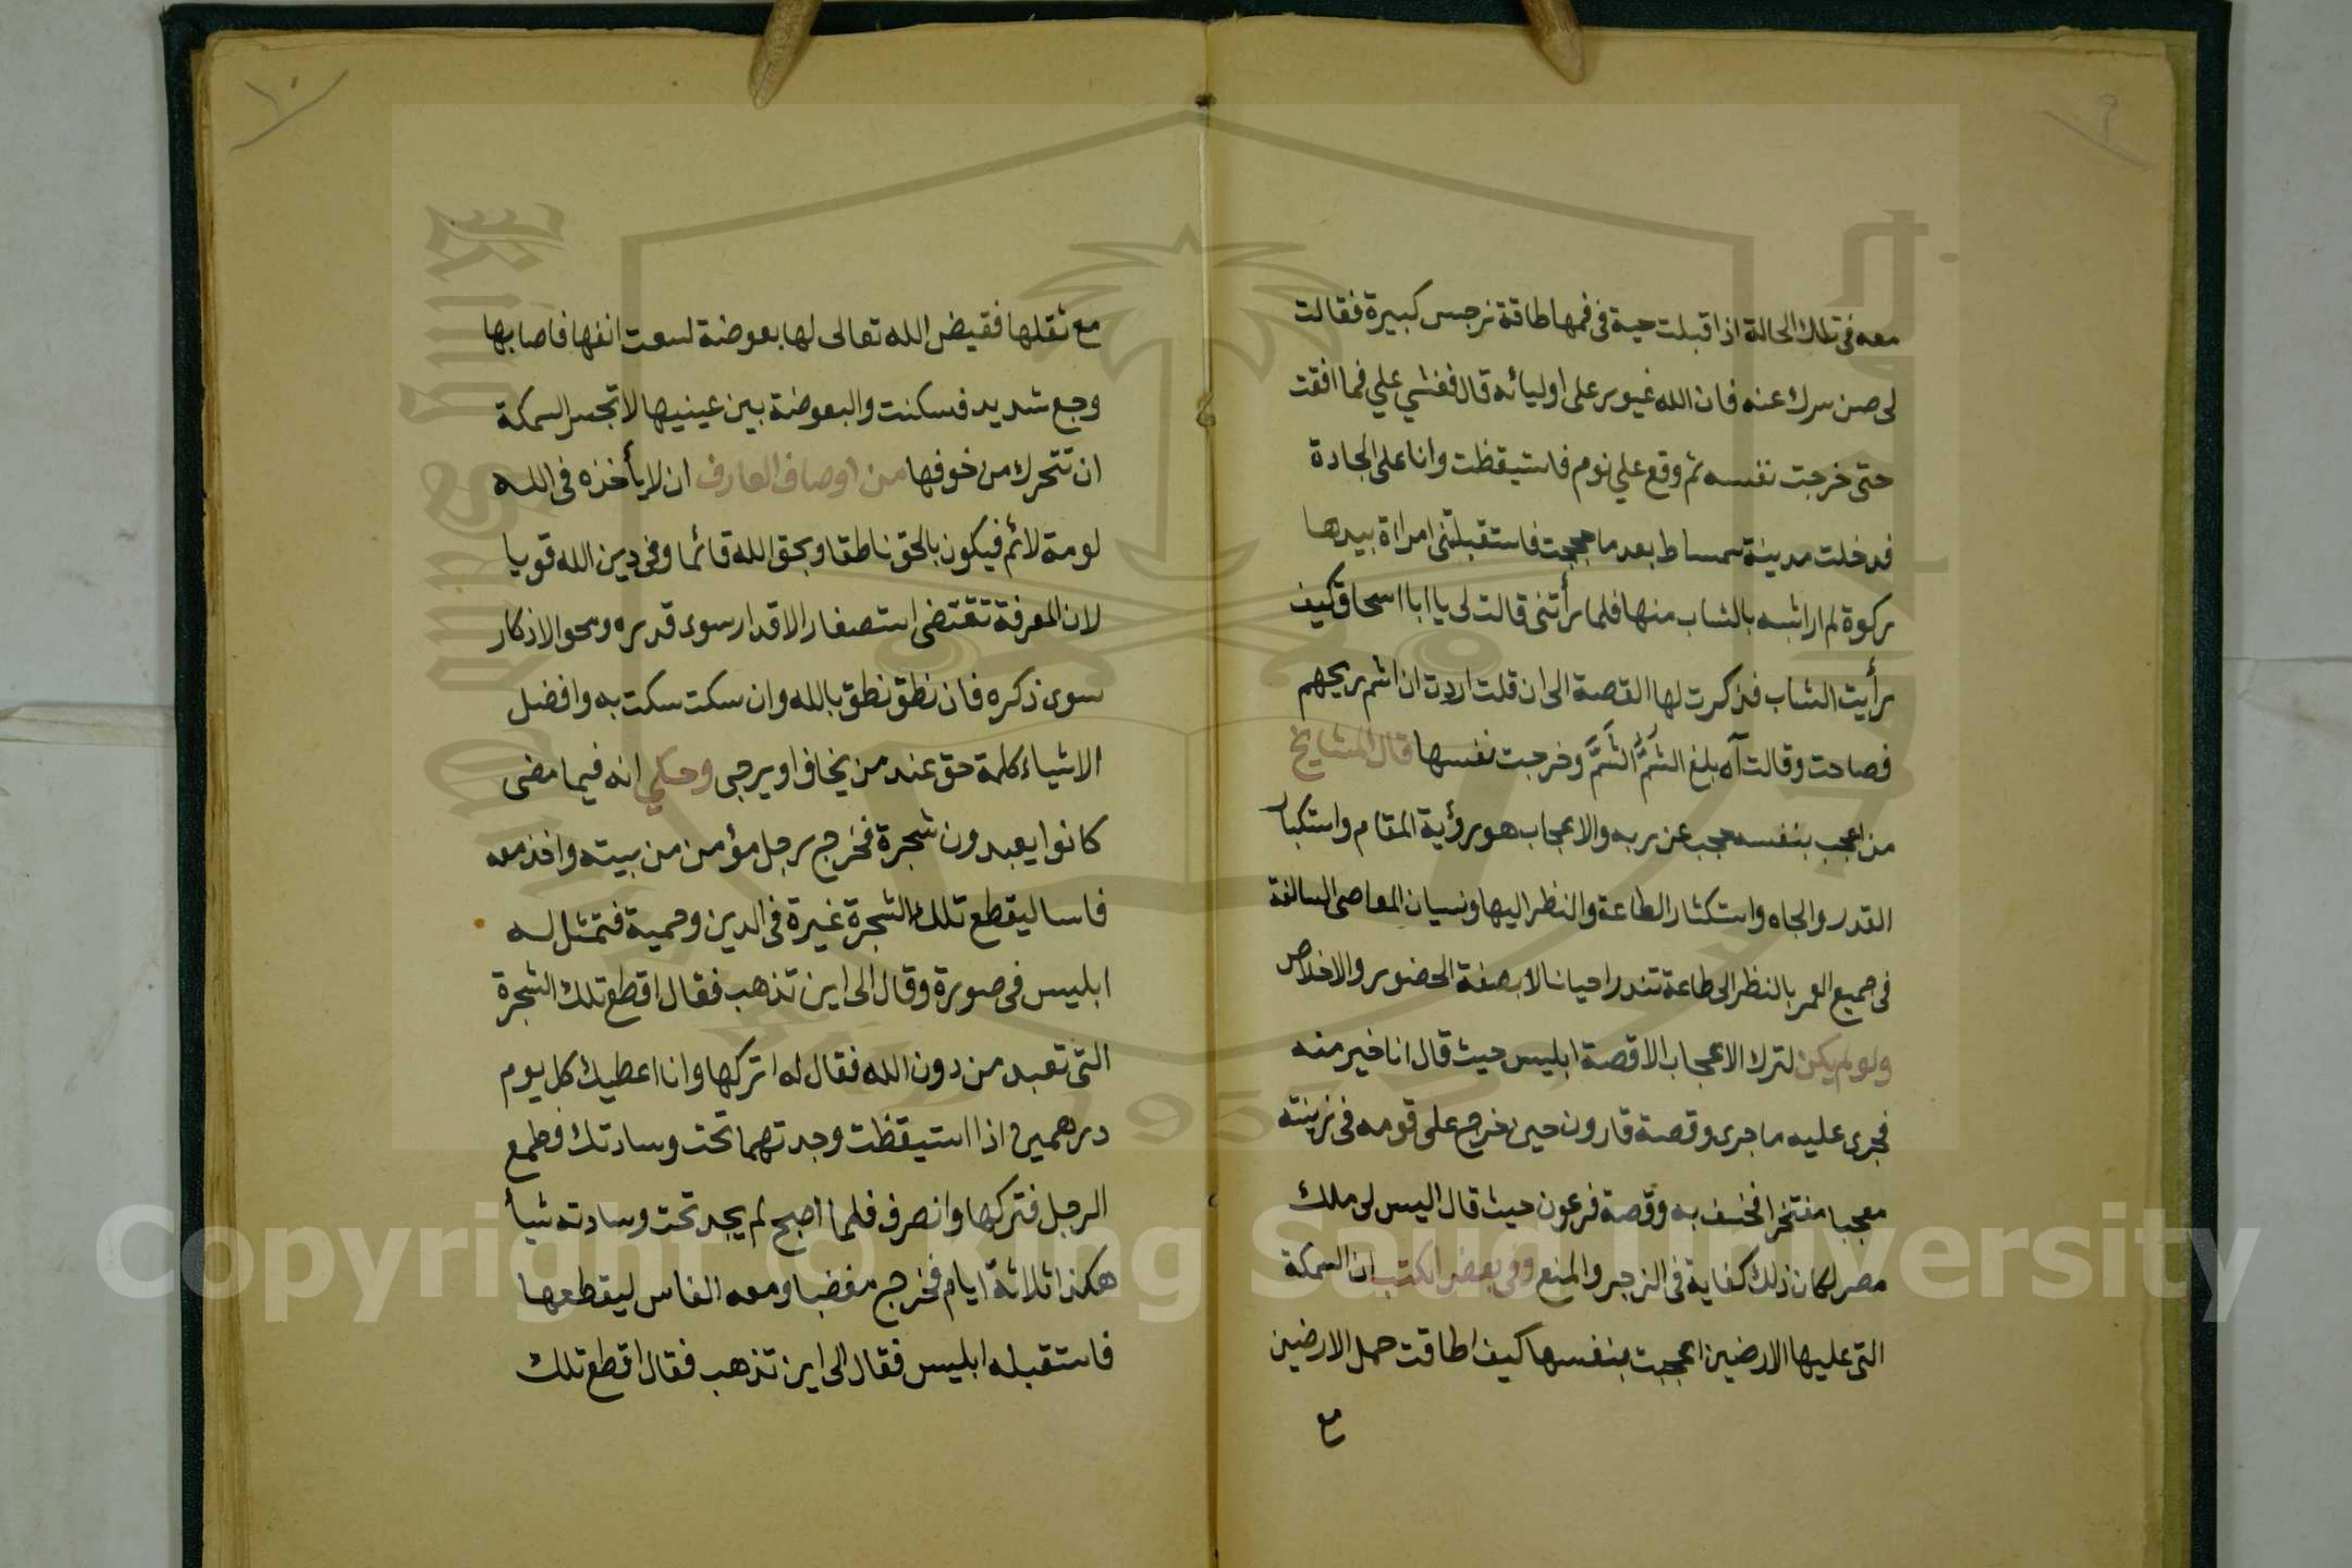 ٩
معه فى تلك الحالة اذ اقبلت حية فى فمها طاقة نرجس كبيرة فقالت
لى صن سرك عنه فان الله غيور على اوليائه قال فغشي علي فما افقت
حتى خرجت نفسه ثم وقع علي نوم فاستيقظت وانا على الجادة
فدخلت مدينة سمساط بعد ما حججت فاستقبلتنى امراة بيدها
ركوة لم ار اشبه بالشاب منها فلما رأتنى قالت لى يا ابا اسحاق كيف
رأيت الشاب فذكرت لها القصة الى ان قلت اردت ان اشم ريحهم
فصاحت وقالت آه بلغ الشَمُّ الشَمَّ وخرجت نفسها قال المشايخ
من اعجب بنفسه حجب عن ربه والاعجاب هو رؤية المقام واستكبار
القدر والجاه واستكثار الطاعة والنظر اليها ونسيان المعاصى السالفة
فى جميع العمر بالنظر الى طاعة تندر احيانا لا بصفة الحضور والاخلاص
ولو لم يكن لترك الاعجاب الا قصة ابليس حيث قال انا خير منه
فجرى عليه ما جرى وقصة قارون حين خرج على قومه فى زينته
معجبا مفتخرا فخسف به وقصة فرعون حيث قال اليس لى ملك
مصر لكان ذلك كفاية فى الزجر والمنع وفى بعض الكتب ان السمكة
التى عليها الارضين اعجبت بنفسها كيف اطاقت حمل الارضين
مع
١٠
مع ثقلها فقيض الله تعالى لها بعوضة لسعت انفها فاصابها
وجع شديد فسكنت والبعوضة بين عينيها لا تجسر السمكة
ان تتحرك من خوفها من اوصاف العارف ان لا يأخذه فى الله
لومة لائم فيكون بالحق ناطقا وبحق الله قائما وفى دين الله قويا
لان المعرفة تقتضى استصغار الاقدار سوى قدره ومحو الاذكار
سوى ذكره فان نطق نطق بالله وان سكت سكت به وافضل
الاشياء كلمة حق عند من يخاف او يرجى وحكي انه فيما مضى
كانوا يعبدون شجرة فخرج رجل مؤمن من بيته واخذ معه
فاسا ليقطع تلك الشجرة غيرة فى الدين وحمية فتمثل له
ابليس فى صورة وقال الى اين تذهب فقال اقطع تلك الشجرة
التى تعبد من دون الله فقال له اتركها وانا اعطيك كل يوم
درهمين اذا استيقظت وجدتهما تحت وسادتك فطمع
الرجل فتركها وانصرف فلما اصبح لم يجد تحت وسادته شيأ
هكذا ثلاثة ايام فخرج مغضبا ومعه الفاس ليقطعها
فاستقبله ابليس فقال الى اين تذهب فقال اقطع تلك
Copyright © King Saud University
1957